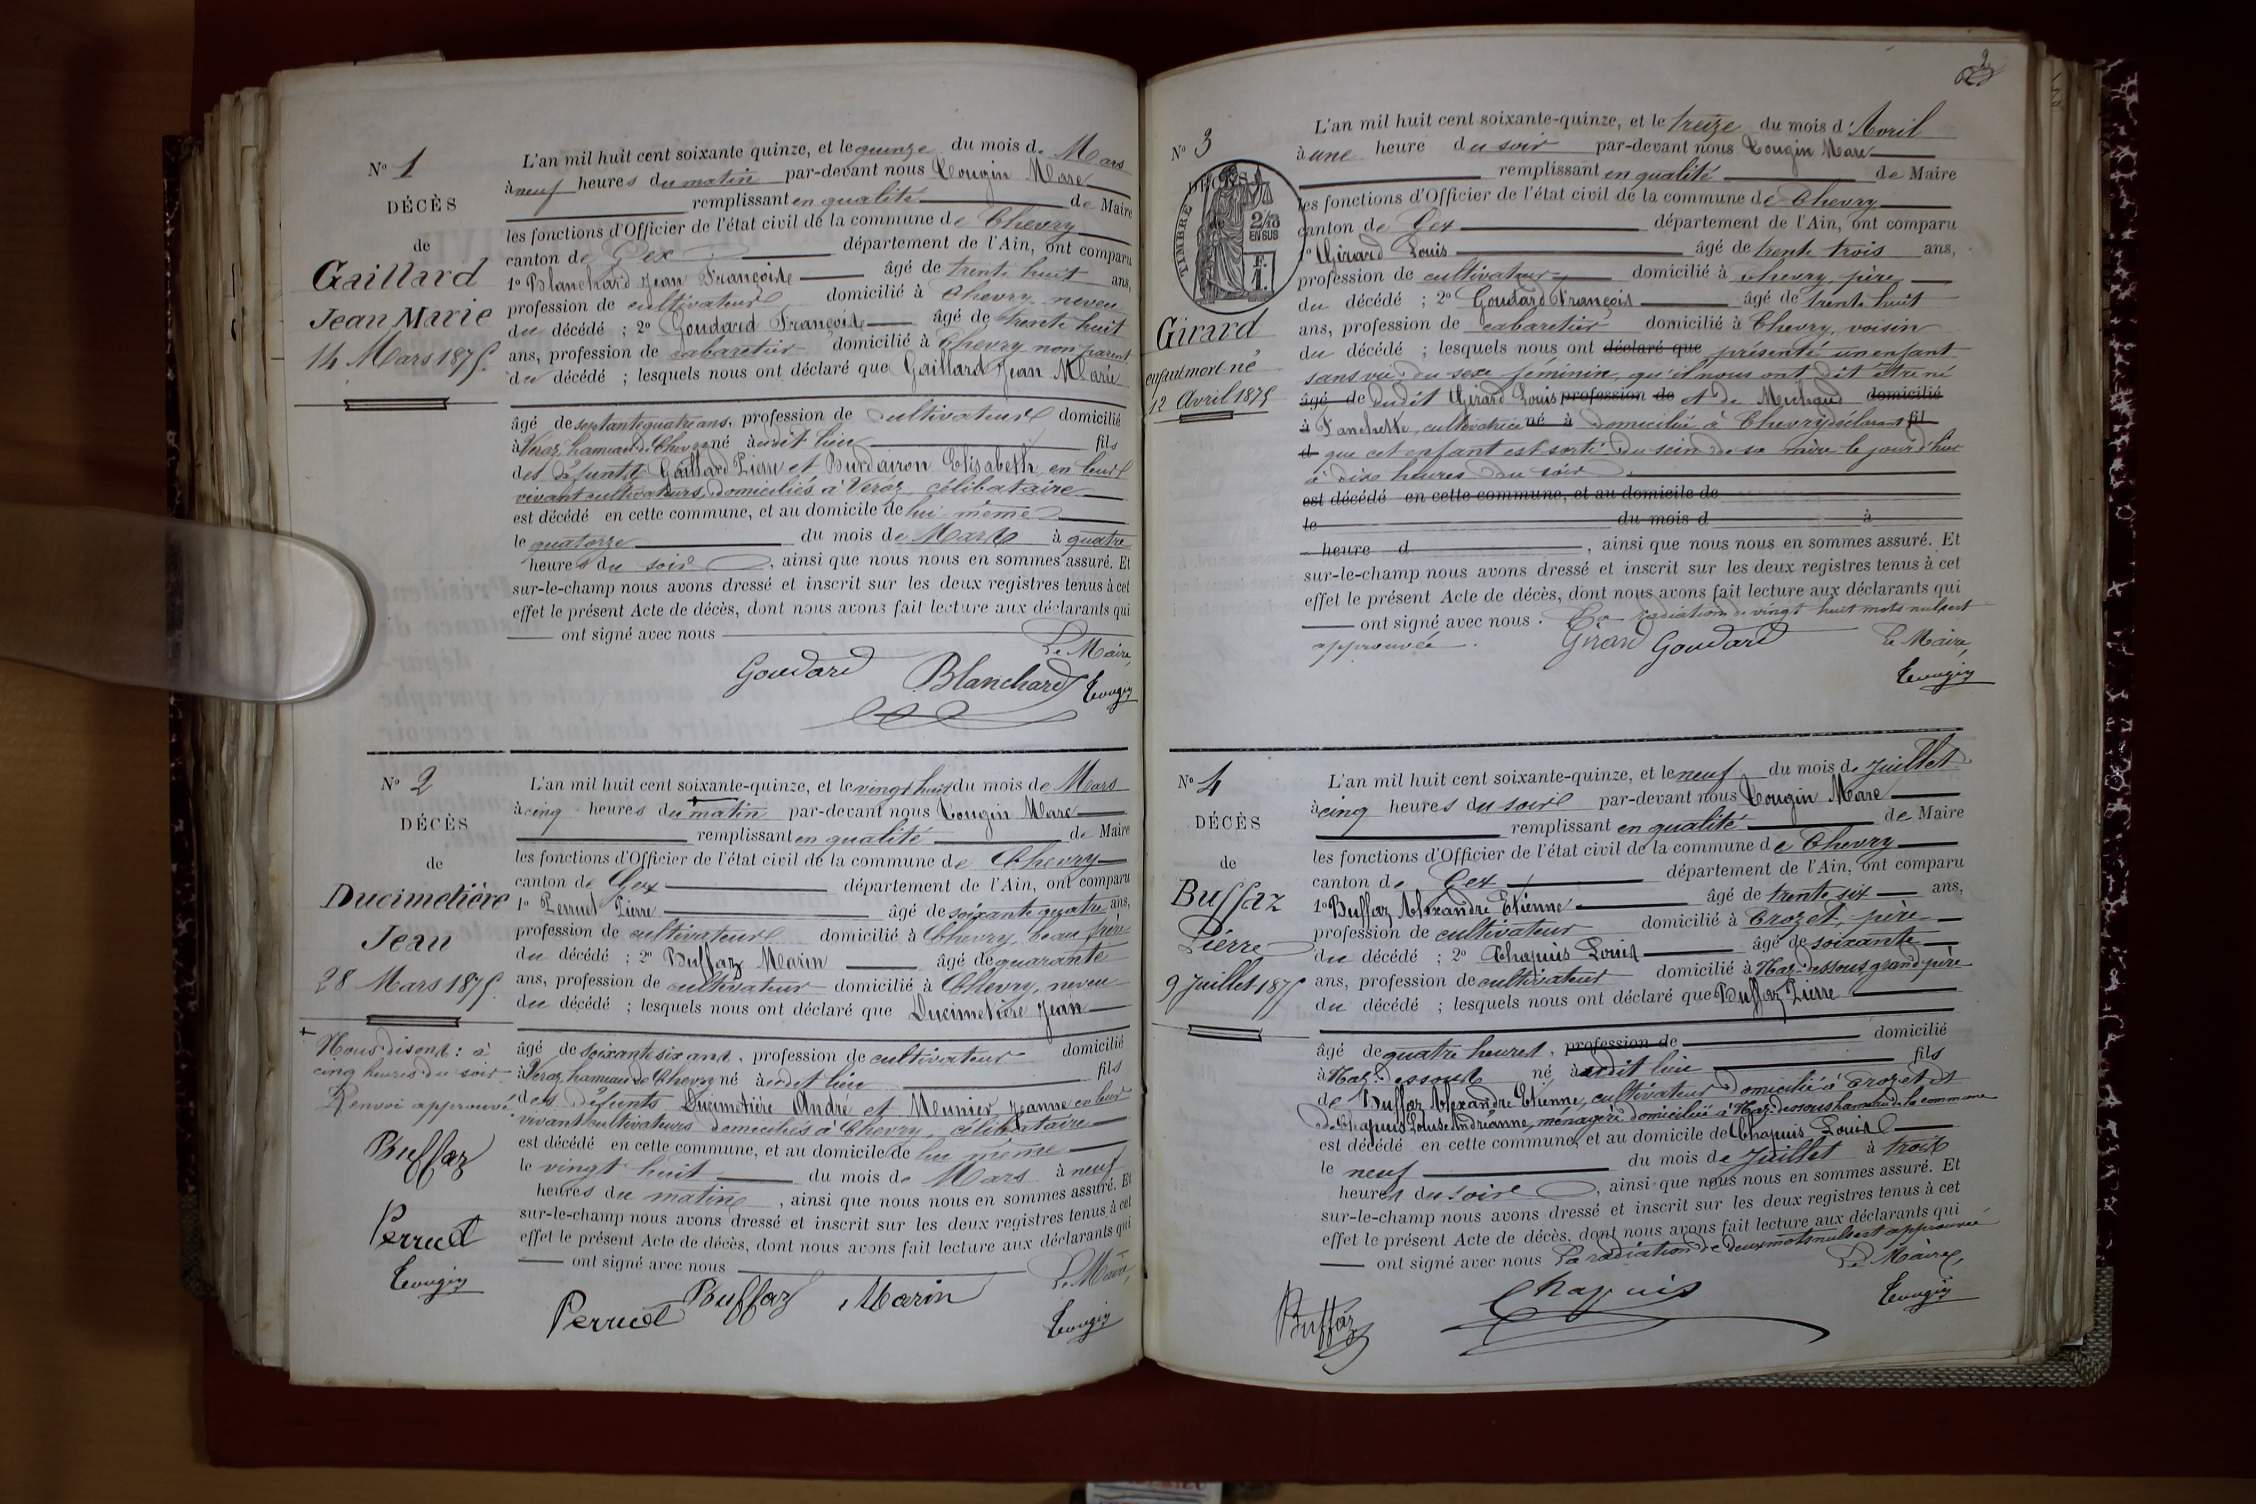 No 1
DÉCÈS
de
Gaillard
Jean Marie
14 Mars 1875.
L'an mil huit cent soixante quinze, et le quinze du mois de Mars
à neuf heures du matin par-devant nous Tougin Marc
remplissant en qualité de Maire
les fonctions d'Officier de l'état civil de la commune de Chevry
canton de Gex département de l'Ain, ont comparu
1o Blanchard Jean François âgé de trente huit ans,
profession de cultivateur domicilié à Chevry neveu
du décédé ; 2o Goudard François âgé de trente huit
ans, profession de cabaretier domicilié à Chevry non parent
du décédé ; lesquels nous ont déclaré que Gaillard Jean Marie
âgé de septante quatre ans, profession de cultivateur domicilié
à Veraz, hameau de Chevry né audit lieu fils
des défunts Gaillard Pierre et Burdairon Elisabeth en leur
vivant cultivateurs, domiciliés à Veraz, célibataire
est décédé en cette commune, et au domicile de lui-même
le quatorze du mois de Mars à quatre
heures du soir, ainsi que nous nous en sommes assuré. Et
sur-le-champ nous avons dressé et inscrit sur les deux registres tenus à cet
effet le présent Acte de décès, dont nous avons fait lecture aux déclarants qui
ont signé avec nous
Le Maire,
Goudard Blanchard Tougin
No 2
DÉCÈS
de
Ducimetière
Jean
28 Mars 1875.
Nous disons : à
cinq heures du soir
Renvoi approuvé.
Buffaz
Perrud
Tougin
L'an mil huit cent soixante-quinze, et le vingt huit du mois de Mars
à cinq heures du matin par-devant nous Tougin Marc
remplissant en qualité de Maire
les fonctions d'Officier de l'état civil de la commune de Chevry
canton de Gex département de l'Ain, ont comparu
1o Perrud Pierre âgé de soixante quatre ans,
profession de cultivateur domicilié à Chevry, beau frère
du décédé ; 2o Buffaz Marin âgé de quarante
ans, profession de cultivateur domicilié à Chevry, neveu
du décédé ; lesquels nous ont déclaré que Ducimetière Jean
âgé de soixante six ans, profession de cultivateur domicilié
à Veraz, hameau de Chevry né audit lieu fils
des défunts Ducimetière André et Meunier Jeanne en leur
vivant cultivateurs domiciliés à Chevry, célibataire
est décédé en cette commune, et au domicile de lui même
le vingt huit du mois de Mars à neuf
heures du matin, ainsi que nous nous en sommes assuré. Et
sur-le-champ nous avons dressé et inscrit sur les deux registres tenus à cet
effet le présent Acte de décès, dont nous avons fait lecture aux déclarants qui
ont signé avec nous
Le Maire,
Perrud Buffaz Marin Tougin
2
No 3
DÉCÈS
TIMBRE
2/10
EN SUS
F.
1.
Girard
enfant mort-né
12 Avril 1875
L'an mil huit cent soixante-quinze, et le treize du mois d'Avril
à une heure du soir par-devant nous Tougin Marc
remplissant en qualité de Maire
les fonctions d'Officier de l'état civil de la commune de Chevry
canton de Gex département de l'Ain, ont comparu
1o Girard Louis âgé de trente trois ans,
profession de cultivateur domicilié à Chevry, père
du décédé ; 2o Goudard François âgé de trente huit
ans, profession de cabaretier domicilié à Chevry, voisin
du décédé ; lesquels nous ont déclaré que présenté un enfant
sans vie du sexe féminin, qu'il nous ont dit être né
âgé de dudit Girard Louis profession de et de Michaud domicilié
à Fanchette, cultivatrice né à domicilié à Chevry déclarant fil
d que cet enfant est sorti du sein de sa mère le jour d'hier
à dix heures du soir.
est décédé en cette commune, et au domicile de
le du mois d à
heure d , ainsi que nous nous en sommes assuré. Et
sur-le-champ nous avons dressé et inscrit sur les deux registres tenus à cet
effet le présent Acte de décès, dont nous avons fait lecture aux déclarants qui
ont signé avec nous. La radiation de vingt huit mots nuls est
approuvée.
Girard Goudard Le Maire,
Tougin
No 4
DÉCÈS
de
Buffaz
Pierre
9 Juillet 1875
L'an mil huit cent soixante-quinze, et le neuf du mois de Juillet
à cinq heures du soir par-devant nous Tougin Marc
remplissant en qualité de Maire
les fonctions d'Officier de l'état civil de la commune de Chevry
canton de Gex département de l'Ain, ont comparu
1o Buffaz Alexandre Etienne âgé de trente six ans,
profession de cultivateur domicilié à Crozet, père
du décédé ; 2o Chapuis Louis âgé de soixante
ans, profession de cultivateur domicilié à Naz-dessous grand-père
du décédé ; lesquels nous ont déclaré que Buffaz Pierre
âgé de quatre heures, profession de domicilié
à Naz-dessous né audit lieu fils
de Buffaz Alexandre Etienne, cultivateur domicilié à Crozet et
de Chapuis Louise Andrianne, ménagère domiciliée à Naz-dessous hameau de la commune
est décédé en cette commune, et au domicile de Chapuis Louis
le neuf du mois de Juillet à trois
heures du soir, ainsi que nous nous en sommes assuré. Et
sur-le-champ nous avons dressé et inscrit sur les deux registres tenus à cet
effet le présent Acte de décès, dont nous avons fait lecture aux déclarants qui
ont signé avec nous La radiation de deux mots nuls est approuvée
Le Maire,
Buffaz Chapuis Tougin